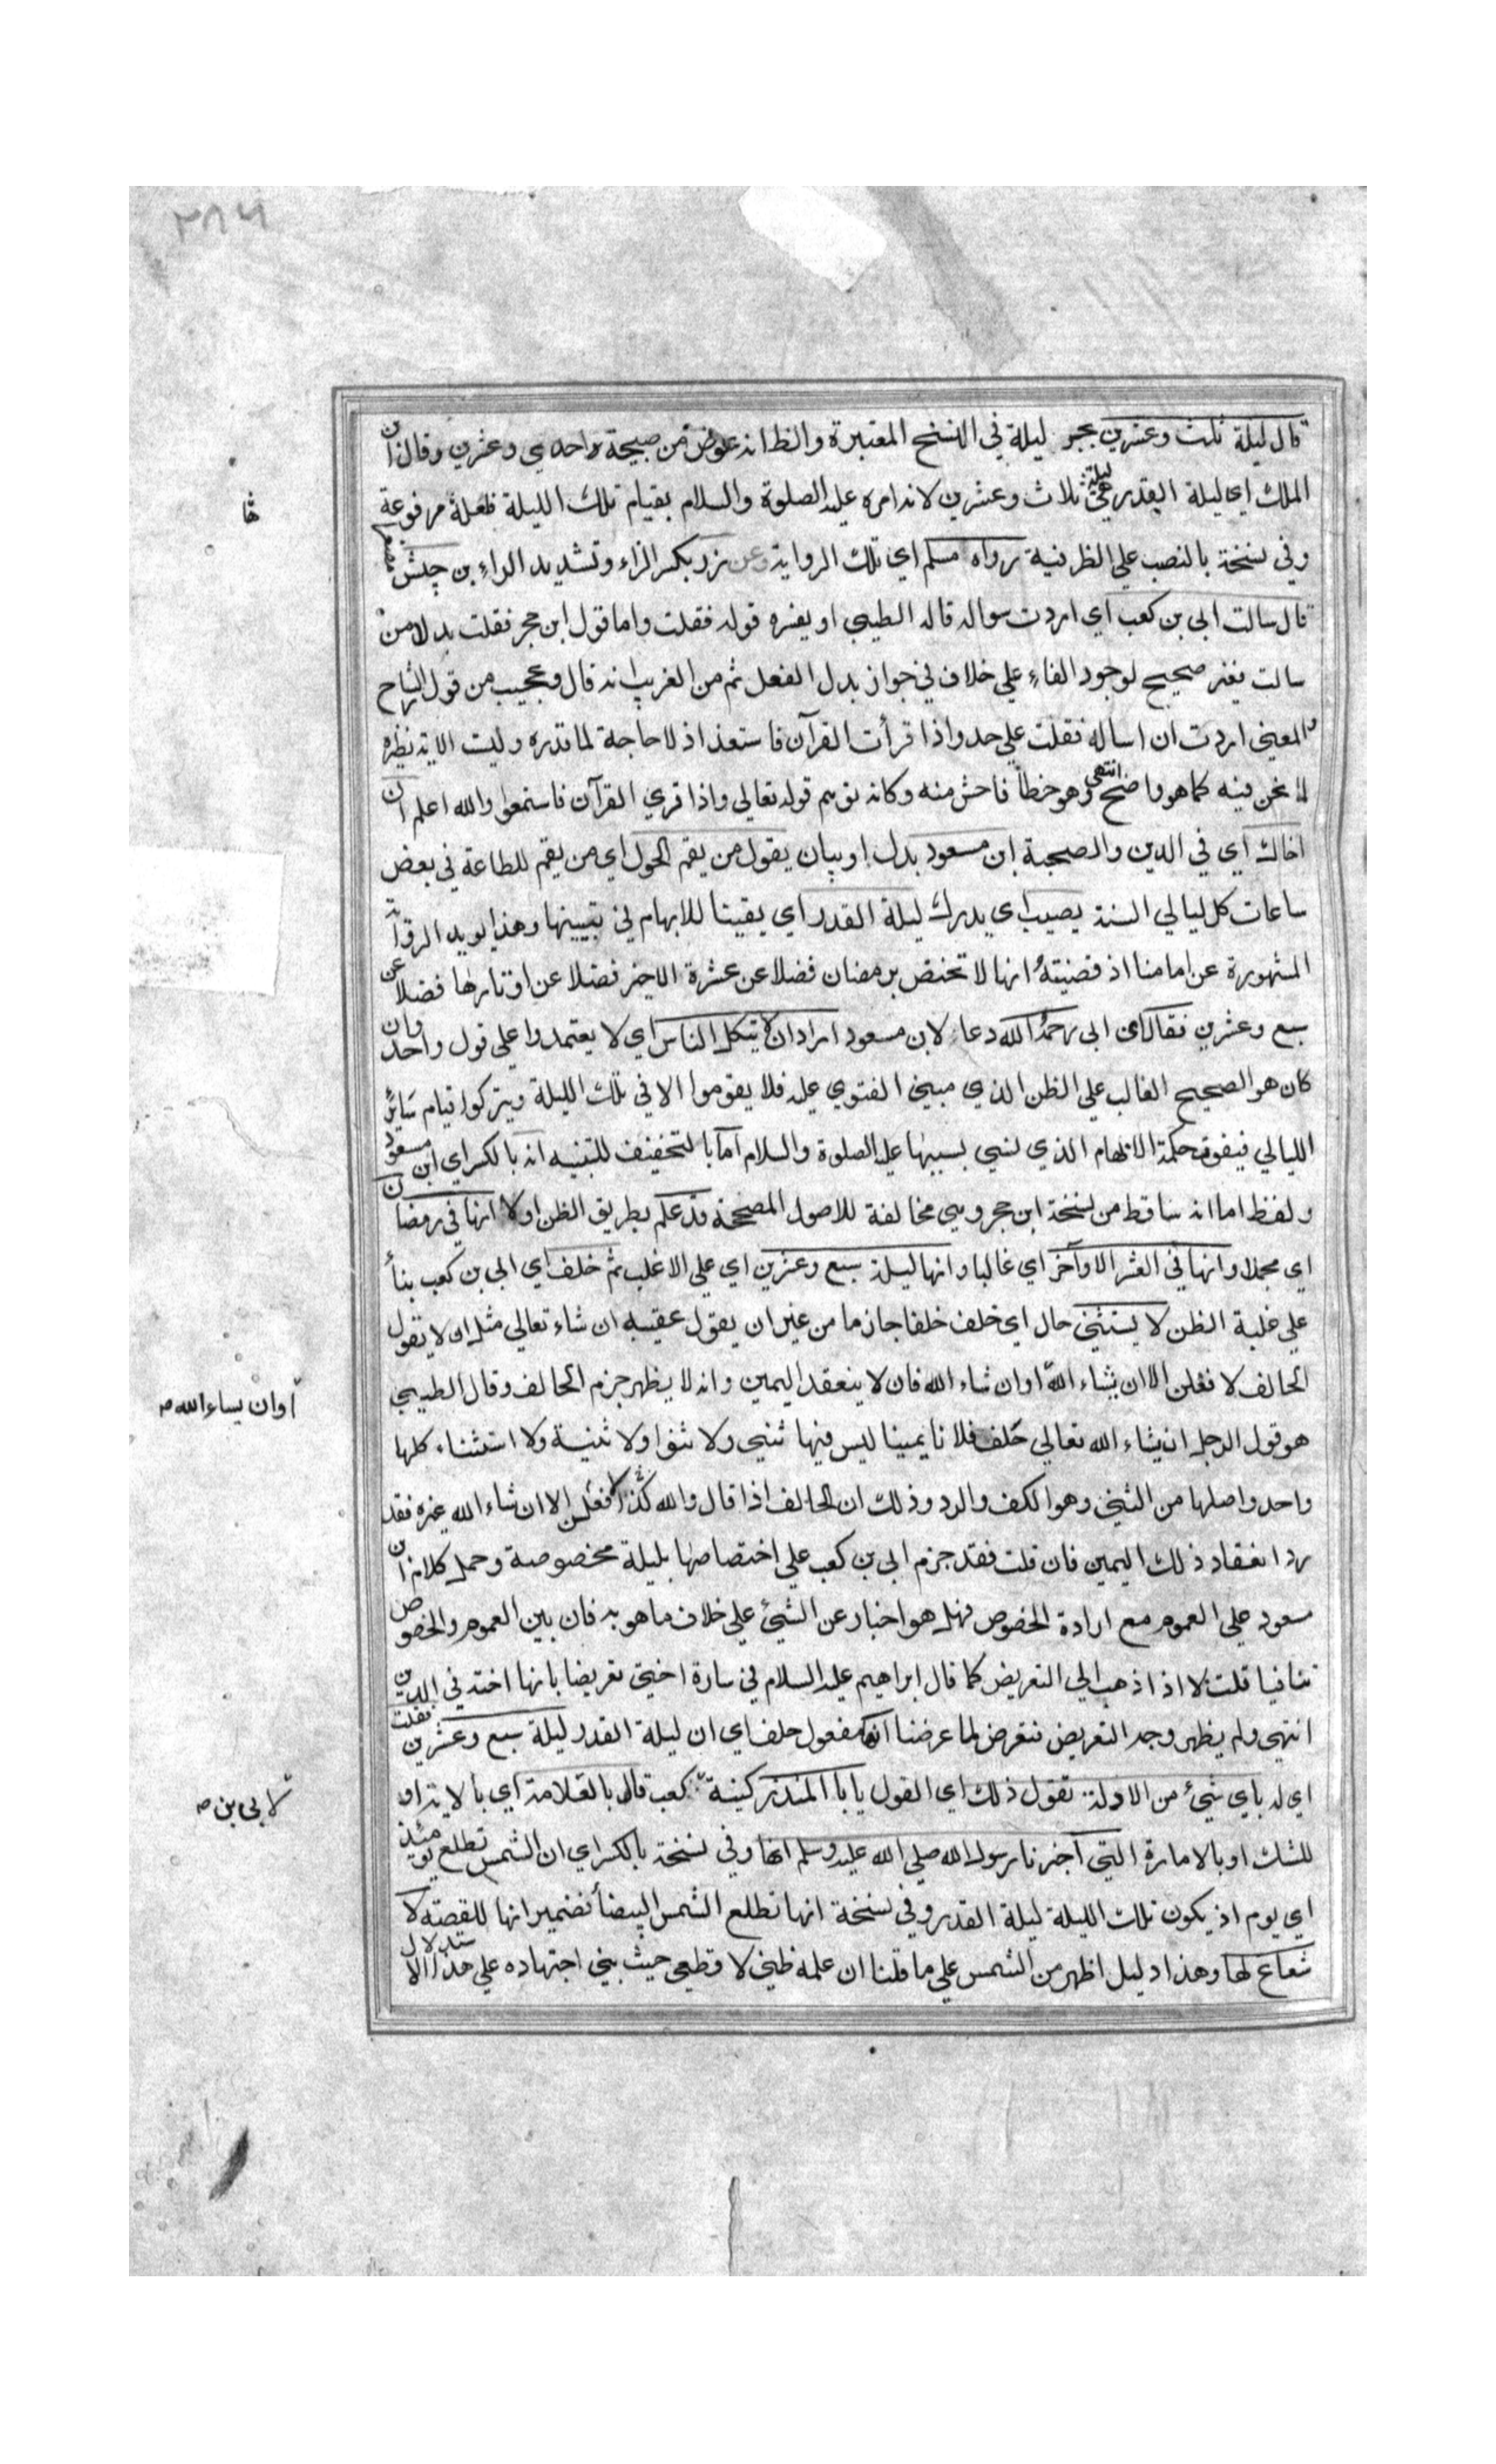 ٢٨٦
قال ليلة ثلث وعشرين بجر ليلة في النسخ المعتبرة والظ انه عوض من صبيحة واحدي وعشرين وقال ابن
الملك اي ليلة القدر هي ليلة ثلاث وعشرين لانه امره عليه الصلوة والسلام بقيام تلك الليلة فليلة مرفوعة
وفي نسخة بالنصب علي الظرفية رواه مسلم اي تلك الرواية وعن زر بكسر الزاء وتشديد الراء بن حبيش
قال سالت ابي بن كعب اي اردت سواله قاله الطيبي او يفسره قوله فقلت واما قول ابن حجر فقلت بدل من
سالت فغير صحيح لوجود الفاء علي خلاف في جواز بدل الفعل ثم من الغريب انه قال وعجيب من قول الشارح
المعني اردت ان اساله فقلت علي حد واذا قرأت القرآن فاستعذ اذ لا حاجة لما قدره وليت الاية نظيره
لما نحن فيه كما هو واضح انتهي وهو خطأ فاحش منه وكانه توهم قوله تعالي واذا قري القرآن فاستمعوا والله اعلم ان
اخاك اي في الدين والصحبة ابن مسعود بدل او بيان يقول من يقم الحول اي من يقم للطاعة في بعض
ساعات كل ليالي السنة يصب اي يدرك ليلة القدر اي يقينا للابهام في تبيينها وهذا يويد الرواية
المشهورة عن امامنا اذ قضيته انها لا تختص برمضان فضلا عن عشرة الاخير فضلا عن اوتارها فضلا عن
سبع وعشرين فقال اي ابي رحمه الله دعاء لابن مسعود اراد ان لا يتكل الناس اي لا يعتمدوا علي قول واحد وان
كان هو الصحيح الغالب علي الظن الذي مبني الفتوي عليه فلا يقوموا الا في تلك الليلة ويتركوا قيام سائر
الليالي فيفوت حكمة الابهام الذي نسي بسببها عليه الصلوة والسلام اما بالتخفيف للتنبيه انه بالكسر اي ابن مسعود
ولفظ اما انه ساقط من نسخة ابن حجر وهي مخالفة للاصول المصححة قد علم بطريق الظن اولا انها في رمضان
اي مجملا وانها في العشر الاواخر اي غالبا وانها ليلة سبع وعشرين اي علي الاغلب ثم حلف اي ابي بن كعب بنأ
علي غلبة الظن لا يستثني حال اي حلف حلفا جازما من غير ان يقول عقيبه ان شاء تعالي مثل ان لا يقول
الحالف لا فعلن الا ان يشاء الله او ان شاء الله فان لا ينعقد اليمين وانه لا يظهر جزم الحالف وقال الطيبي
هو قول الرجل ان يشاء الله تعالي حلف فلان يمينا ليس فيها ثني ولا ثنوا ولا ثنية ولا استثناء كلها
واحد واصلها من الثني وهو الكف والرد وذلك ان الحالف اذا قال والله لا فعلن كذا الا ان شاء الله غيره فقد
رد انعقاد ذلك اليمين فان قلت فقد جزم ابي بن كعب علي اختصاصها بليلة مخصوصة وحمل كلام ابن
مسعود علي العموم مع ارادة الخصوص فهل هو اخبار عن الشئ علي خلاف ما هو به فان بين العموم والخصوص
تنافيا قلت لا اذا ذهب الي التعريض كما قال ابراهيم عليه السلام في سارة اختي تعريضا بانها اخته في الدين
انتهي ولم يظهر وجه التعريض فتعرض لما عرضنا انها مفعول حلف اي ان ليلة القدر ليلة سبع وعشرين فقلت
اي له باي شئ من الادلة تقول ذلك اي القول يا ابا المنذر كنية كعب قال بالعلامة اي بالاية او
للشك او بالامارة التي اخبرنا رسول الله صلي الله عليه وسلم انها وفي نسخة بالكسر اي ان الشمس تطلع يومئذ
اي يوم اذ يكون تلك الليلة ليلة القدر وفي نسخة انها تطلع الشمس البيضأ فضمير انها للقصة لا
شعاع لها وهذا دليل اظهر من الشمس علي ما قلنا ان علمه ظني لا قطعي حيث بني اجتهاده علي هذا الاستدلال
اوان يساء الله م
لابي بن م